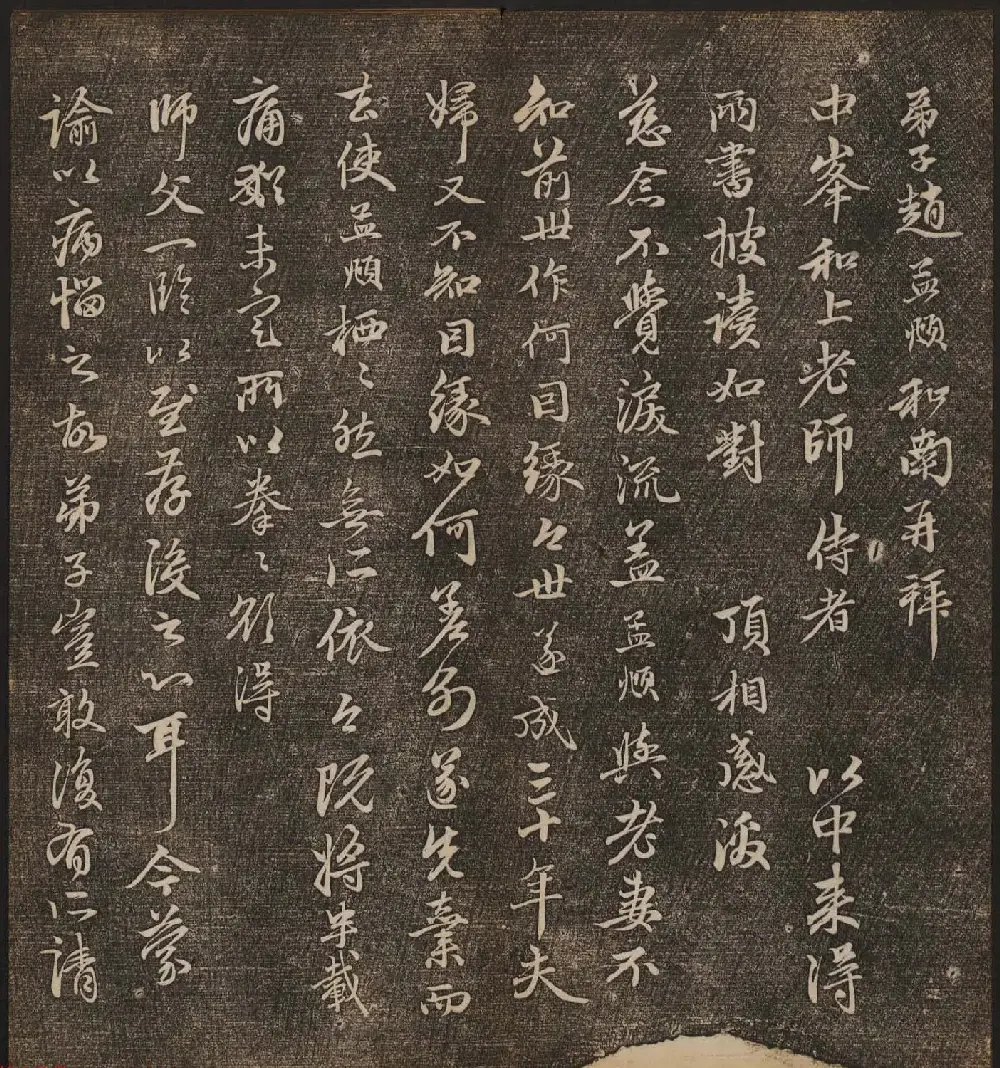 弟子趙孟頫和南再拜
中峯和上老師侍者 以中来得
兩書披讀如對 頂相感激
慈念不覺淚流盖孟頫與老妻不
知前世作何因緣今世遂成三十年夫
婦又不知因緣如何差别遂先棄而
去使孟頫栖〻然無所依今既将半載
痛猶未定所以拳〻欲得
師父一臨以至存没之心耳今蒙
諭以病惱之故弟子豈敢復有所請